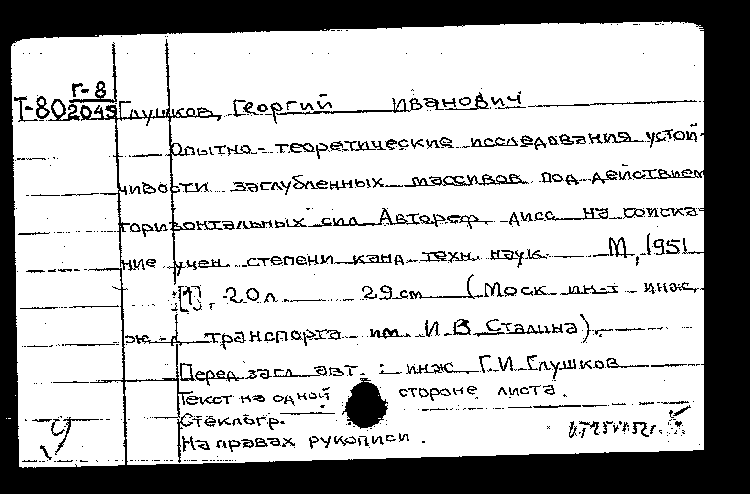 Г-8
Т-80 2049 Глушков, Георгий Иванович
Опытно-теоретические исследования устой-
чивости заглубленных массивов под действием
горизонтальных сил Автореф. дисс. на соиска-
ние учен. степени канд. техн. наук. М, 1951
[1], 20 л. 29 см (Моск ин-т инж.
ж.-д. транспорта им. И.В.Сталина).
Перед загл. авт.: инж. Г.И.Глушков
Текст на одной стороне листа.
Стеклогр.
На правах рукописи.